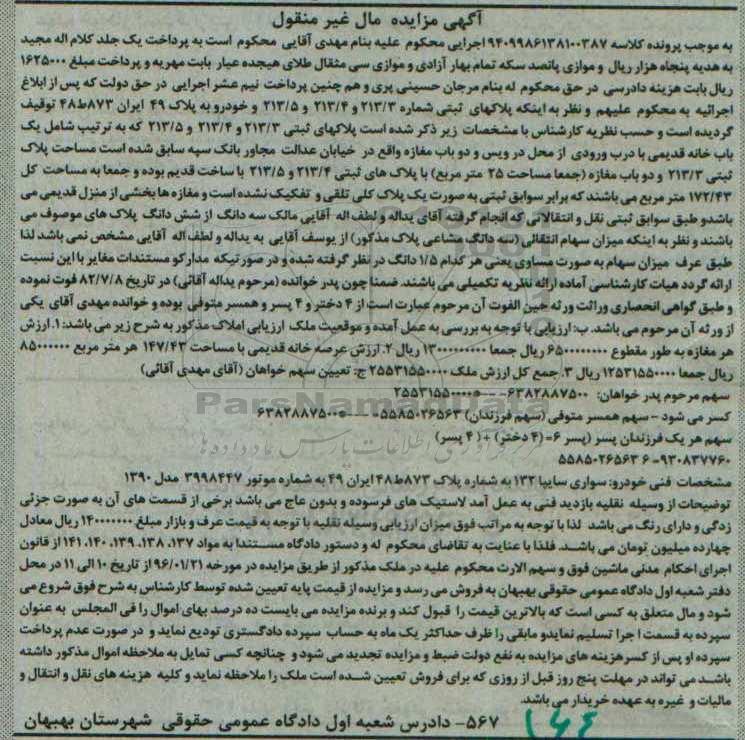 آگهی مزایده مال غیر منقول
به موجب پرونده کلاسه ۹۴۰۹۹۸۶۱۳۸۱۰۰۳۸۷ اجرایی محکوم علیه بنام مهدی آقایی محکوم است به پرداخت یک جلد کلام اله مجید
به هدیه پنجاه هزار ریال و موازی پانصد سکه تمام بهار آزادی و موازی سی مثقال طلای هیجده عیار بابت مهریه و پرداخت مبلغ ۱۶۲۵۰۰۰
ریال بابت هزینه دادرسی در حق محکوم له بنام مرجان حسینی پری و هم چنین پرداخت نیم عشر اجرایی در حق دولت که پس از ابلاغ
اجرائیه به محکوم علیهم و نظر به اینکه پلاکهای ثبتی شماره ۲۱۳/۳ و ۲۱۳/۴ و ۲۱۳/۵ و خودرو به پلاک ۴۹ ایران ۸۷۳ط۴۸ توقیف
گردیده است و حسب نظریه کارشناس با مشخصات زیر ذکر شده است پلاکهای ثبتی ۲۱۳/۳ و ۲۱۳/۴ و ۲۱۳/۵ که به ترتیب شامل یک
باب خانه قدیمی با درب ورودی از محل در ویس و دو باب مغازه واقع در خیابان عدالت مجاور بانک سپه سابق شده است مساحت پلاک
ثبتی ۲۱۳/۳ و دو باب مغازه (جمعا مساحت ۲۵ متر مربع) با پلاک های ثبتی ۲۱۳/۴ و ۲۱۳/۵ با ساخت قدیم بوده و جمعا به مساحت کل
۱۷۲/۴۳ متر مربع می باشند که برابر سوابق ثبتی به صورت یک پلاک کلی تلقی و تفکیک نشده است و مغازه ها بخشی از منزل قدیمی می
باشدو طبق سوابق ثبتی نقل و انتقالاتی که انجام گرفته آقای یداله و لطف اله آقایی مالک سه دانگ از شش دانگ پلاک های موصوف می
باشند و نظر به اینکه میزان سهام انتقالی (سه دانگ مشاعی پلاک مذکور) از یوسف آقایی به یداله و لطف اله آقایی مشخص نمی باشد لذا
طبق عرف میزان سهام به صورت مساوی یعنی هر کدام ۱/۵ دانگ در نظر گرفته شده و در صورتیکه مدارکو مستندات مغایر با این نسبت
ارائه گردد هیات کارشناسی آماده ارائه نظریه تکمیلی می باشند. ضمنا چون پدر خوانده (مرحوم یداله آقائی) در تاریخ ۸۲/۷/۸ فوت نموده
و طبق گواهی انحصاری وراثت ورثه حین الفوت آن مرحوم عبارت است از ۴ دختر و ۴ پسر و همسر متوفی بوده و خوانده مهدی آقای یکی
از ورثه آن مرحوم می باشد. ب: ارزیابی با توجه به بررسی به عمل آمده و موقعیت ملک ارزیابی املاک مذکور به شرح زیر می باشد: ۱. ارزش
هر مغازه به طور مقطوع ۶۵۰۰۰۰۰۰۰۰ ریال جمعا ۱۳۰۰۰۰۰۰۰۰۰ ریال ۲. ارزش عرصه خانه قدیمی با مساحت ۱۴۷/۴۳ هر متر مربع ۸۵۰۰۰۰۰۰
ریال جمعا ۱۲۵۳۱۵۵۰۰۰۰ ریال ۳. جمع کل ارزش ملک ۲۵۵۳۱۵۵۰۰۰۰ ج: تعیین سهم خواهان (آقای مهدی آقائی)
سهم مرحوم پدر خواهان: ۶۳۸۲۸۸۷۵۰۰ ۲۵۵۳۱۵۵۰۰۰۰
کسر می شود - سهم همسر متوفی (سهم فرزندان) ۵۵۸۵۰۲۶۵۶۳ ۶۳۸۲۸۸۷۵۰۰
سهم هر یک فرزندان پسر (پسر ۶= (۴ دختر) + (۴ پسر)
۹۳۰۸۳۷۷۶۰= ۶ ۵۵۸۵۰۲۶۵۶۳
مشخصات فنی خودرو: سواری سایپا ۱۳۲ به شماره پلاک ۸۷۳ط۴۸ ایران ۴۹ به شماره موتور ۳۹۹۸۴۴۷ مدل ۱۳۹۰
توضیحات از وسیله نقلیه بازدید فنی به عمل آمد لاستیک های فرسوده و بدون عاج می باشد برخی از قسمت های آن به صورت جزئی
زدگی و دارای رنگ می باشد لذا با توجه به مراتب فوق میزان ارزیابی وسیله نقلیه با توجه به قیمت عرف و بازار مبلغ ۱۴۰۰۰۰۰۰۰ ریال معادل
چهارده میلیون تومان می باشد. فلذا با عنایت به تقاضای محکوم له و دستور دادگاه مستندا به مواد ۱۳۷، ۱۳۸، ۱۳۹، ۱۴۰، ۱۴۱ از قانون
اجرای احکام مدنی ماشین فوق و سهم الارث محکوم علیه در ملک مذکور از طریق مزایده در مورخه ۹۶/۰۱/۲۱ از تاریخ ۱۰ الی ۱۱ در محل
دفتر شعبه اول دادگاه عمومی حقوقی بهبهان به فروش می رسد و مزایده از قیمت پایه تعیین شده توسط کارشناس به شرح فوق شروع می
شود و مال متعلق به کسی است که بالاترین قیمت را قبول کند و برنده مزایده می بایست ده درصد بهای اموال را فی المجلس به عنوان
سپرده به قسمت ا جرا تسلیم نمایدو مابقی را ظرف حداکثر یک ماه به حساب سپرده دادگستری تودیع نماید و در صورت عدم پرداخت
سپرده او پس از کسر هزینه های مزایده به نفع دولت ضبط و مزایده تجدید می شود و چنانچه کسی تمایل به ملاحظه اموال مذکور داشته
باشد می تواند در مهلت پنج روز قبل از روزی که برای فروش تعیین شده است ملک را ملاحظه نماید و کلیه هزینه های نقل و انتقال و
مالیات و غیره به عهده خریدار می باشد.
۵۶۷- دادرس شعبه اول دادگاه عمومی حقوقی شهرستان بهبهان
ParsNamadData